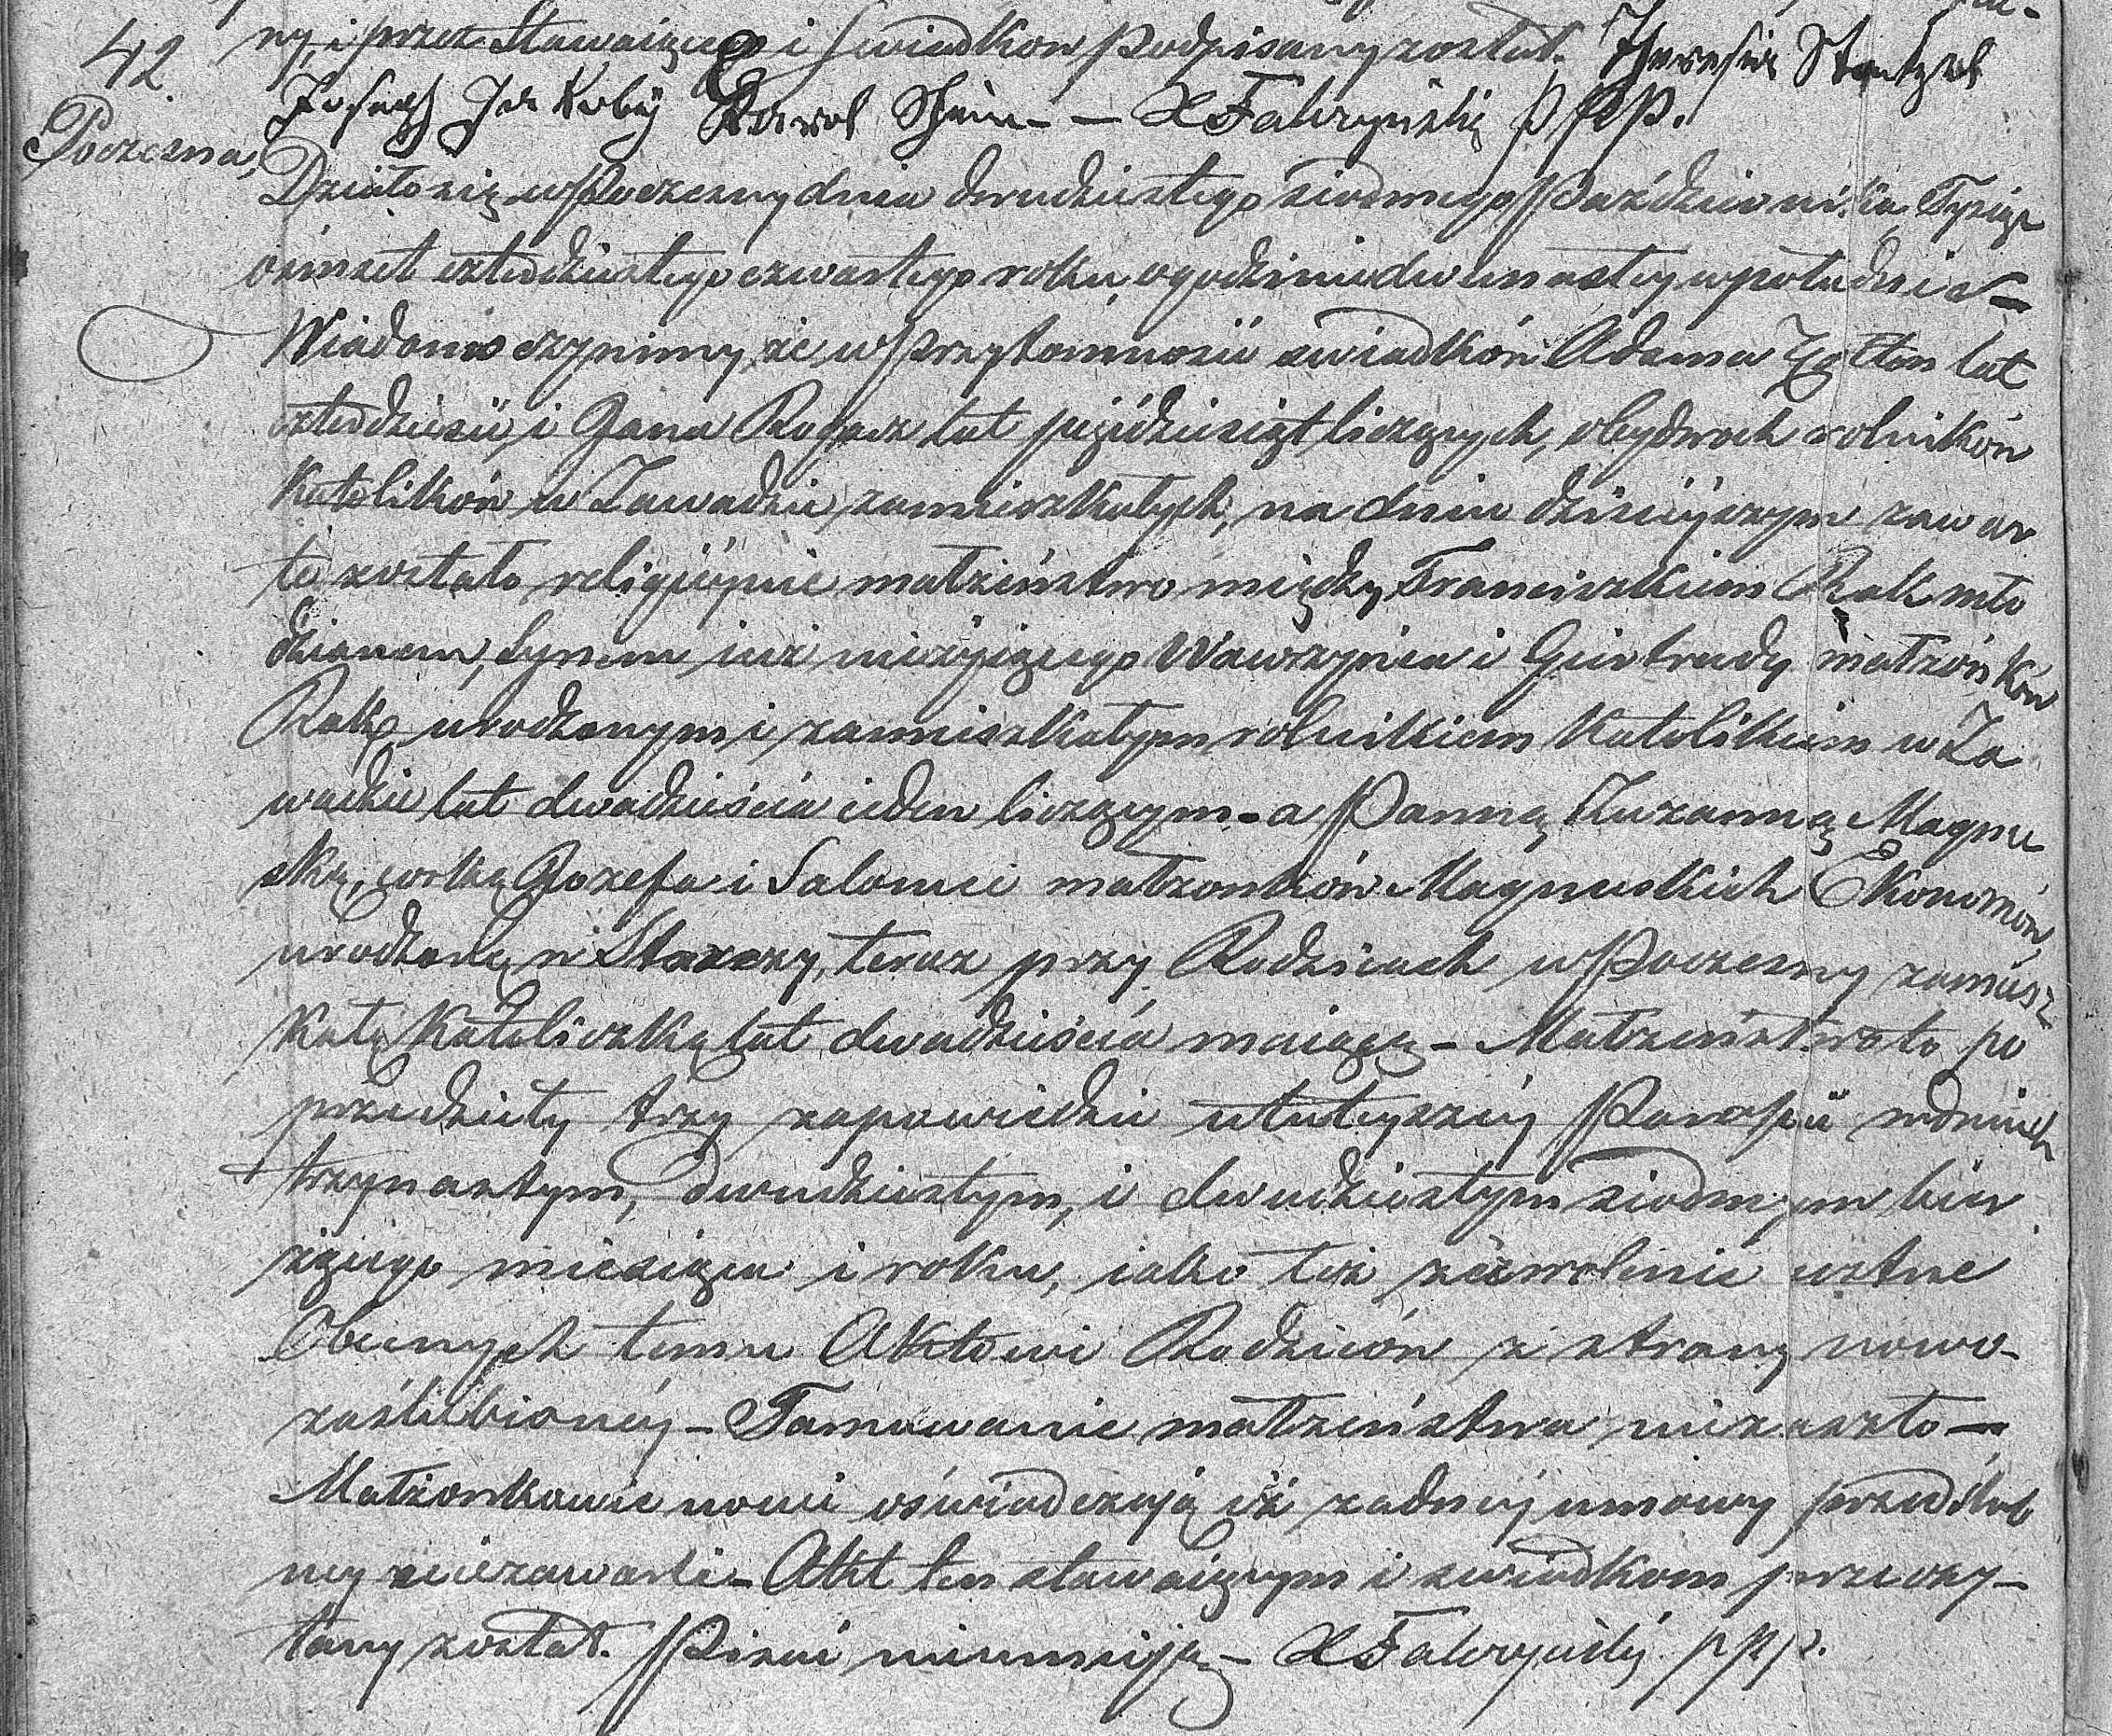 ny, i przez Stawaiącego i Świadków Podpisany został. Theresia
42. Joseph Jakoby Karol X Falczyński P PP.
Poczesna,
Działo się w Poczesny dnia dwudziestego siodmego Października Tysiąc
ośmset czterdziestego czwartego roku, o godzinie dwunastey w południe –
Wiadomo czynimy, że w Przytomności świadków Adama lat
czterdzieści i Jana Rogacz lat pięćdziesiąt liczących, obydwóch rolników
Katolików w Zawadzie zamieszkałych, na dniu dzisieyszym zawar
te zostało religiynie małżeństwo między Franciszkiem Rak mło
dzianem, Synem iuż nieżyiącego Wawrzyńca i Giertrudy małżonków
Raków urodzonym i zamieszkałym rolnikiem Katolikiem w Za
wadzie lat dwadzieścia ieden liczącym – a Panną Zuzanną Magnu
ską, córką Jozefa i Salomei małżonków Magnuskich Ekonomów,
urodzoną w Starczy, teraz przy Rodzicach w Poczesny zamiesz
kałą Katoliczką lat dwadzieścia maiącą – Małżeństwo to po
przedziły trzy zapowiedzie w tuteyszéy Parafii w dniach
trzynastym, dwudziestym, i dwudziestym siodmym bier
żącego miesiąca i roku, iako też zezwolenie ustne
Obecnych temu Aktowi Rodziców z strony nowo-
zaślubionéy – Tamowanie małżeństwa nie zaszło –
Małżonkowie nowi oświadczają iż żadnéy umowy przedślub
ney niezawarli – Akt ten stawaiącym i świadkom przeczy-
tany został. Pisać nieumieją – X Falczyński PPP.